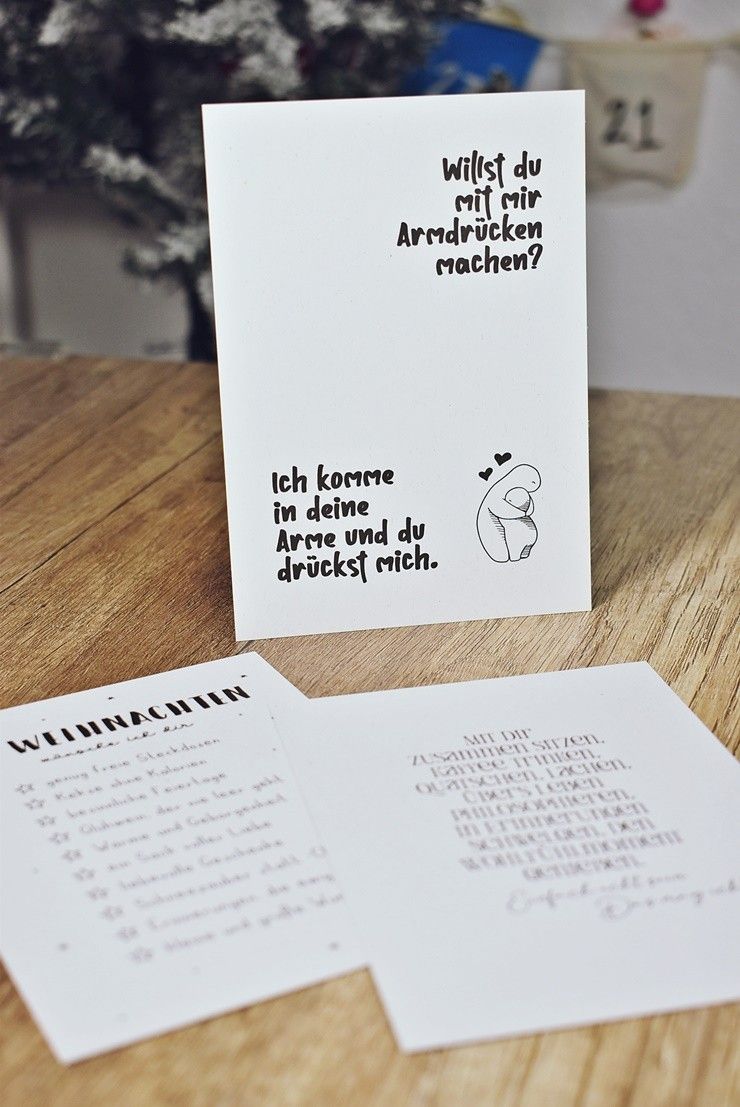 21
Willst du
mit mir
Armdrücken
machen?
Ich komme
in deine
Arme und du
drückst mich.
WEIHNACHTEN
wünsche ich dir
genug freie Steckdosen
Kekse ohne Kalorien
besinnliche Feiertage
Glühwein, der nie leer geht
Wärme und Geborgenheit
ein Sack voller Liebe
liebevolle Geschenke
Schneezauber statt
Erinnerungen, die ewig
kleine und große
MIT DIR
ZUSAMMEN SITZEN,
KAFFEE TRINKEN,
QUATSCHEN, LACHEN,
ÜBERS LEBEN
PHILOSOPHIEREN,
IN ERINNERUNGEN
SCHWELGEN, DEN
WOHLFÜHLMOMENT
GENIEßEN.
Einfach echt sein
Das mag ich